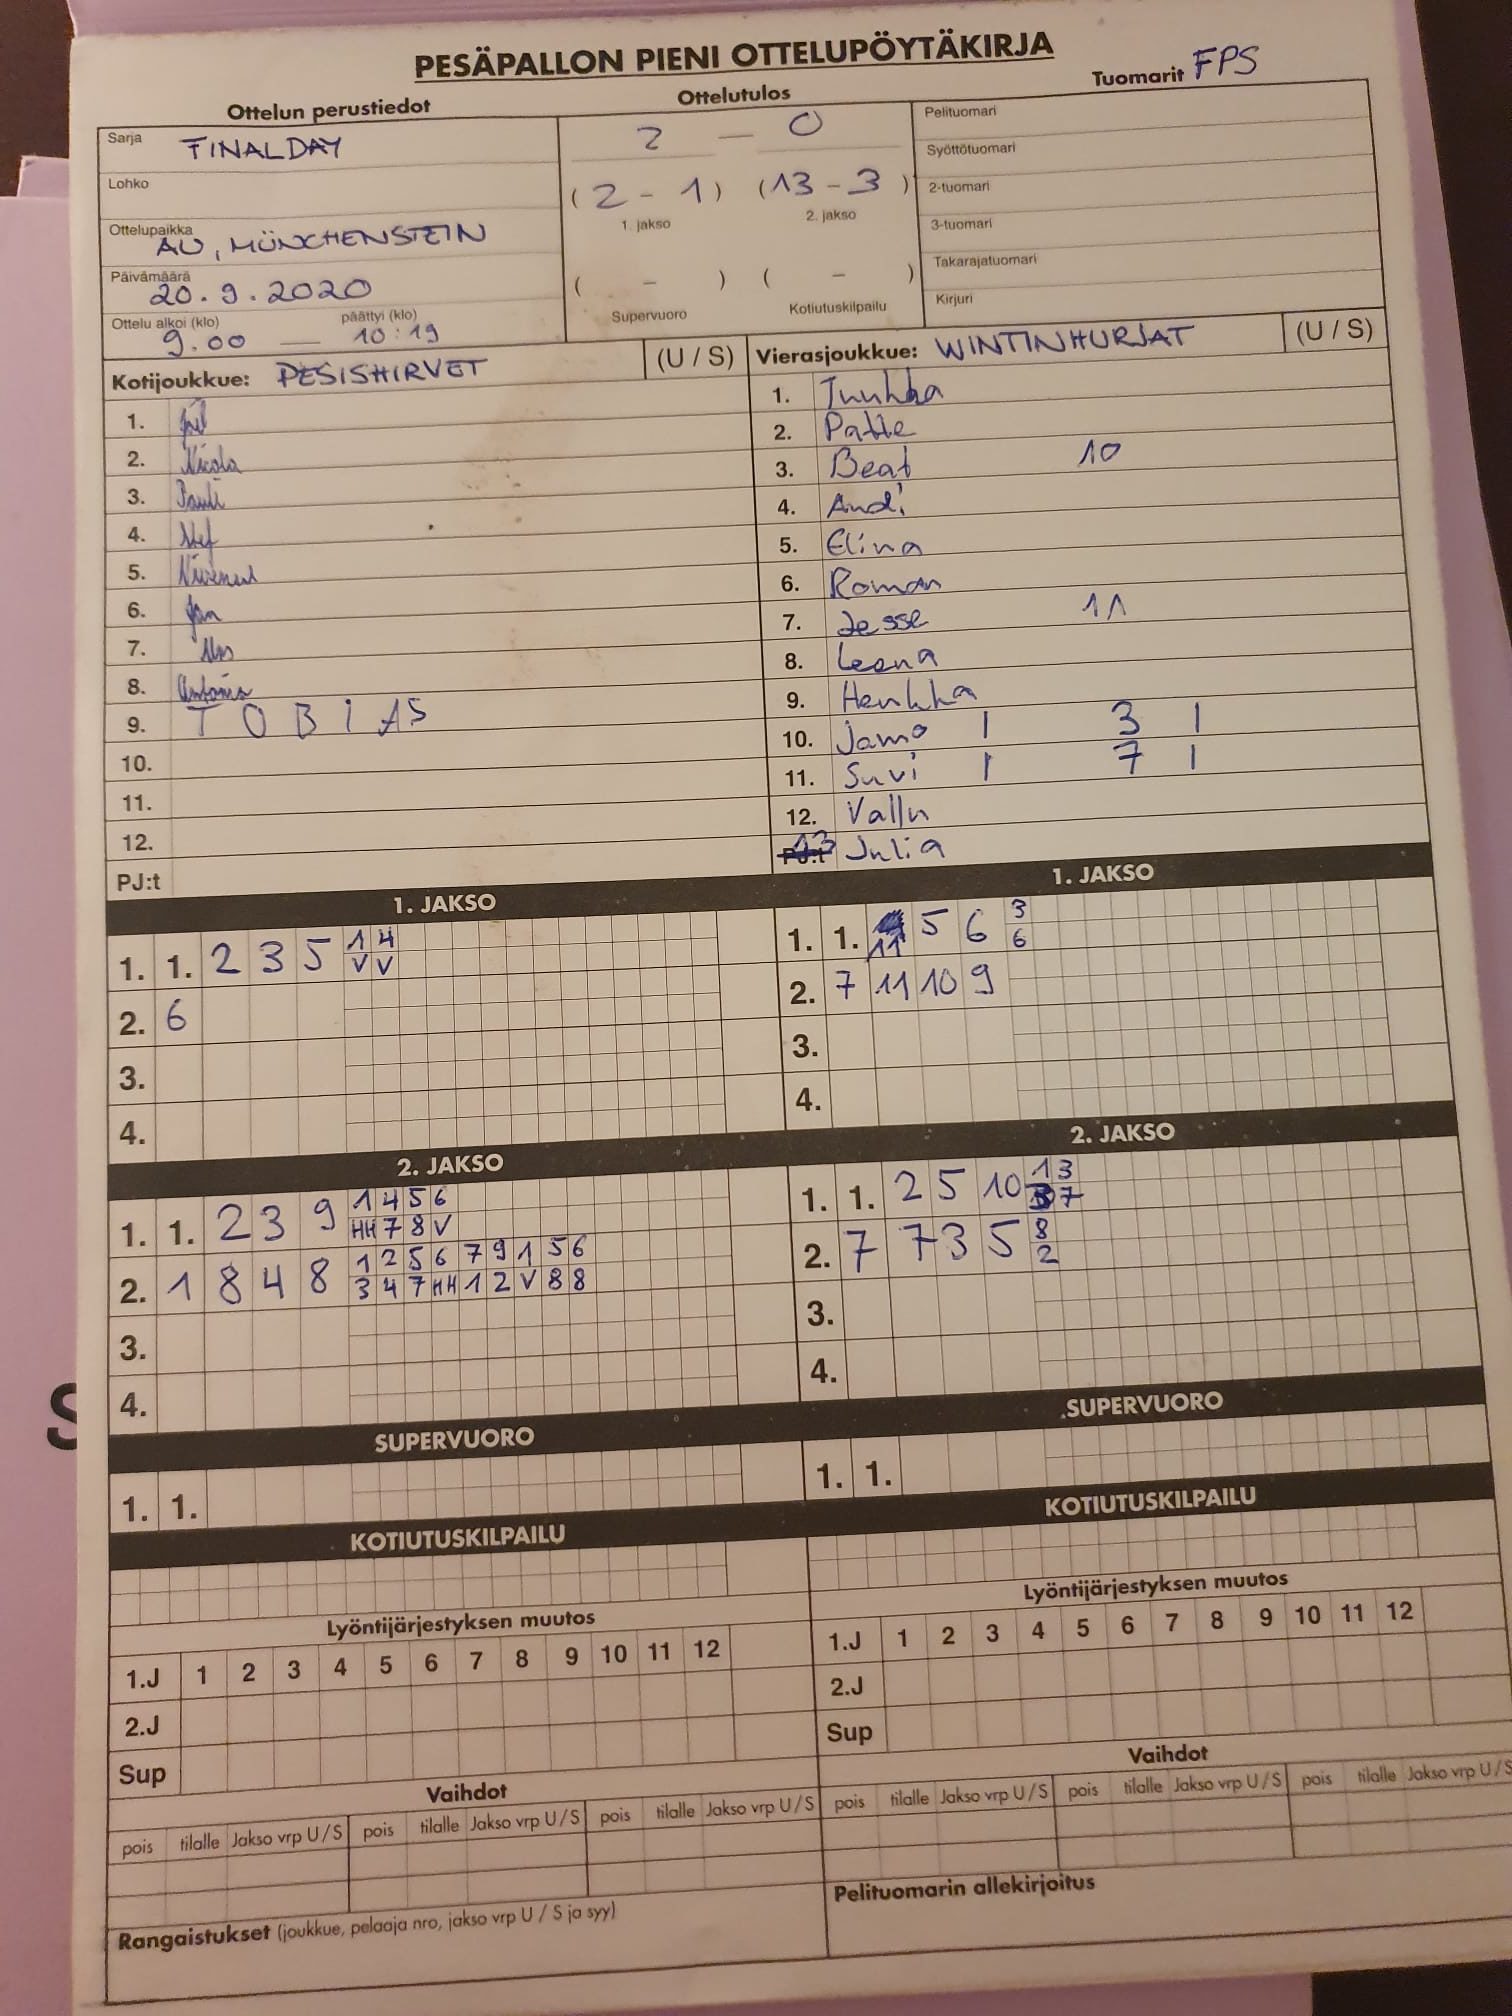 PESÄPALLON PIENI OTTELUPÖYTÄKIRJA
Ottelun perustiedot
Ottelutulos
Tuomarit FPS
Sarja FINALDAY
Lohko
Ottelupaikka AU, MÜNCHENSTEIN
Päivämäärä 20.9.2020
Ottelu alkoi (klo) päättyi (klo)
9.00 — 10:19
2 — 0
(2 - 1) (13 - 3)
1. jakso 2. jakso
( - ) ( - )
Supervuoro Kotiutuskilpailu
Pelituomari
Syöttötuomari
2-tuomari
3-tuomari
Takarajatuomari
Kirjuri
Kotijoukkue: PESISHIRVET (U / S)
1. Joël
2. Nicola
3. Pauli
4. Stef
5.
6. Jan
7.
8. Antonia
9. TOBIAS
10.
11.
12.
PJ:t
Vierasjoukkue: WINTINHURJAT (U / S)
1. Tuuhka
2. Patte
3. Beat 10
4. Andi
5. Elina
6. Roman
7. Jesse 11
8. Leena
9. Henkka
10. Jamo | 3 |
11. Suvi | 7 |
12. Vallu
13 Julia
1. JAKSO
1. 1. 2 3 5 1 4
V V
2. 6
3.
4.
1. JAKSO
1. 1. 11 5 6 3
6
2. 7 11 10 9
3.
4.
2. JAKSO
1. 1. 2 3 9 1 4 5 6
HH 7 8 V
2. 1 8 4 8 1 2 5 6 7 9 1 5 6
3 4 7 HH 1 2 V 8 8
3.
4.
2. JAKSO
1. 1. 2 5 10 1 3
7
2. 7 7 3 5 8
2
3.
4.
SUPERVUORO
1. 1.
SUPERVUORO
1. 1.
KOTIUTUSKILPAILU
KOTIUTUSKILPAILU
Lyöntijärjestyksen muutos
1.J 1 2 3 4 5 6 7 8 9 10 11 12
2.J
Sup
Lyöntijärjestyksen muutos
1.J 1 2 3 4 5 6 7 8 9 10 11 12
2.J
Sup
Vaihdot
pois tilalle Jakso vrp U / S pois tilalle Jakso vrp U / S pois tilalle Jakso vrp U / S
Vaihdot
pois tilalle Jakso vrp U / S pois tilalle Jakso vrp U / S pois tilalle Jakso vrp U / S
Rangaistukset (joukkue, pelaaja nro, jakso vrp U / S ja syy)
Pelituomarin allekirjoitus
S